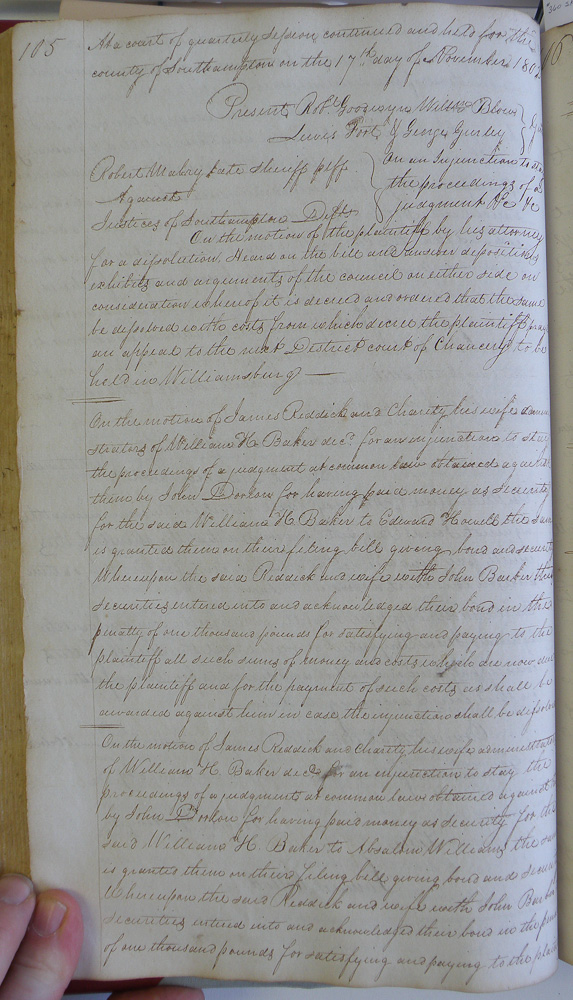 185
At a court of quarterly session continued and held for the
county of Southampton on the 17th day of November 180
Present Robt. Goodwyn Willm Blow
Lewes Fort & George Gurley
Robert Mabry late sheriff pltf
Against
Justices of Southampton Defts
On an Injunction to
the proceedings of a
judgment &c &c
On the motion of the plaintiff by his attorney
for a dissolution. Heard on the bill and answer depositions
exhibits and arguments of the council on either side on
consideration whereof it is decreed and ordered that the same
be dissolved with costs from which decree the plaintiff prays
an appeal to the next District court of Chancery to be
held in Williamsburg
On the motion of James Reddick and Charity his wife admini
strators of William H. Baker decd. for an injunction to stay
the proceedings of a judgment at common law obtained against
them by John Dorlon for having paid money as security
for the said William H. Baker to Edward Howell the same
is granted them on their filing bill giving bond and security
Whereupon the said Reddick and wife with John Barker their
securities entered into and acknowledged their bond in the
penalty of one thousand pounds for satisfying and paying to the
plaintiff all such sums of money and costs which are now due
the plaintiff and for the payment of such costs as shall be
awarded against him in case the injunction shall be dissolv
On the motion of James Reddick and Charity his wife administrat
of William H. Baker decd. for an injunction to stay the
proceedings of a judgment at common law obtained against
by John Dorlon for having paid money as security for the
said William H. Baker to Absalom Williams the sa
is granted them on their filing bill giving bond and secur
Whereupon the said Reddick and wife with John Bark
securities entered into and acknowledged their bond in the pen
of one thousand pounds for satisfying and paying to the plain